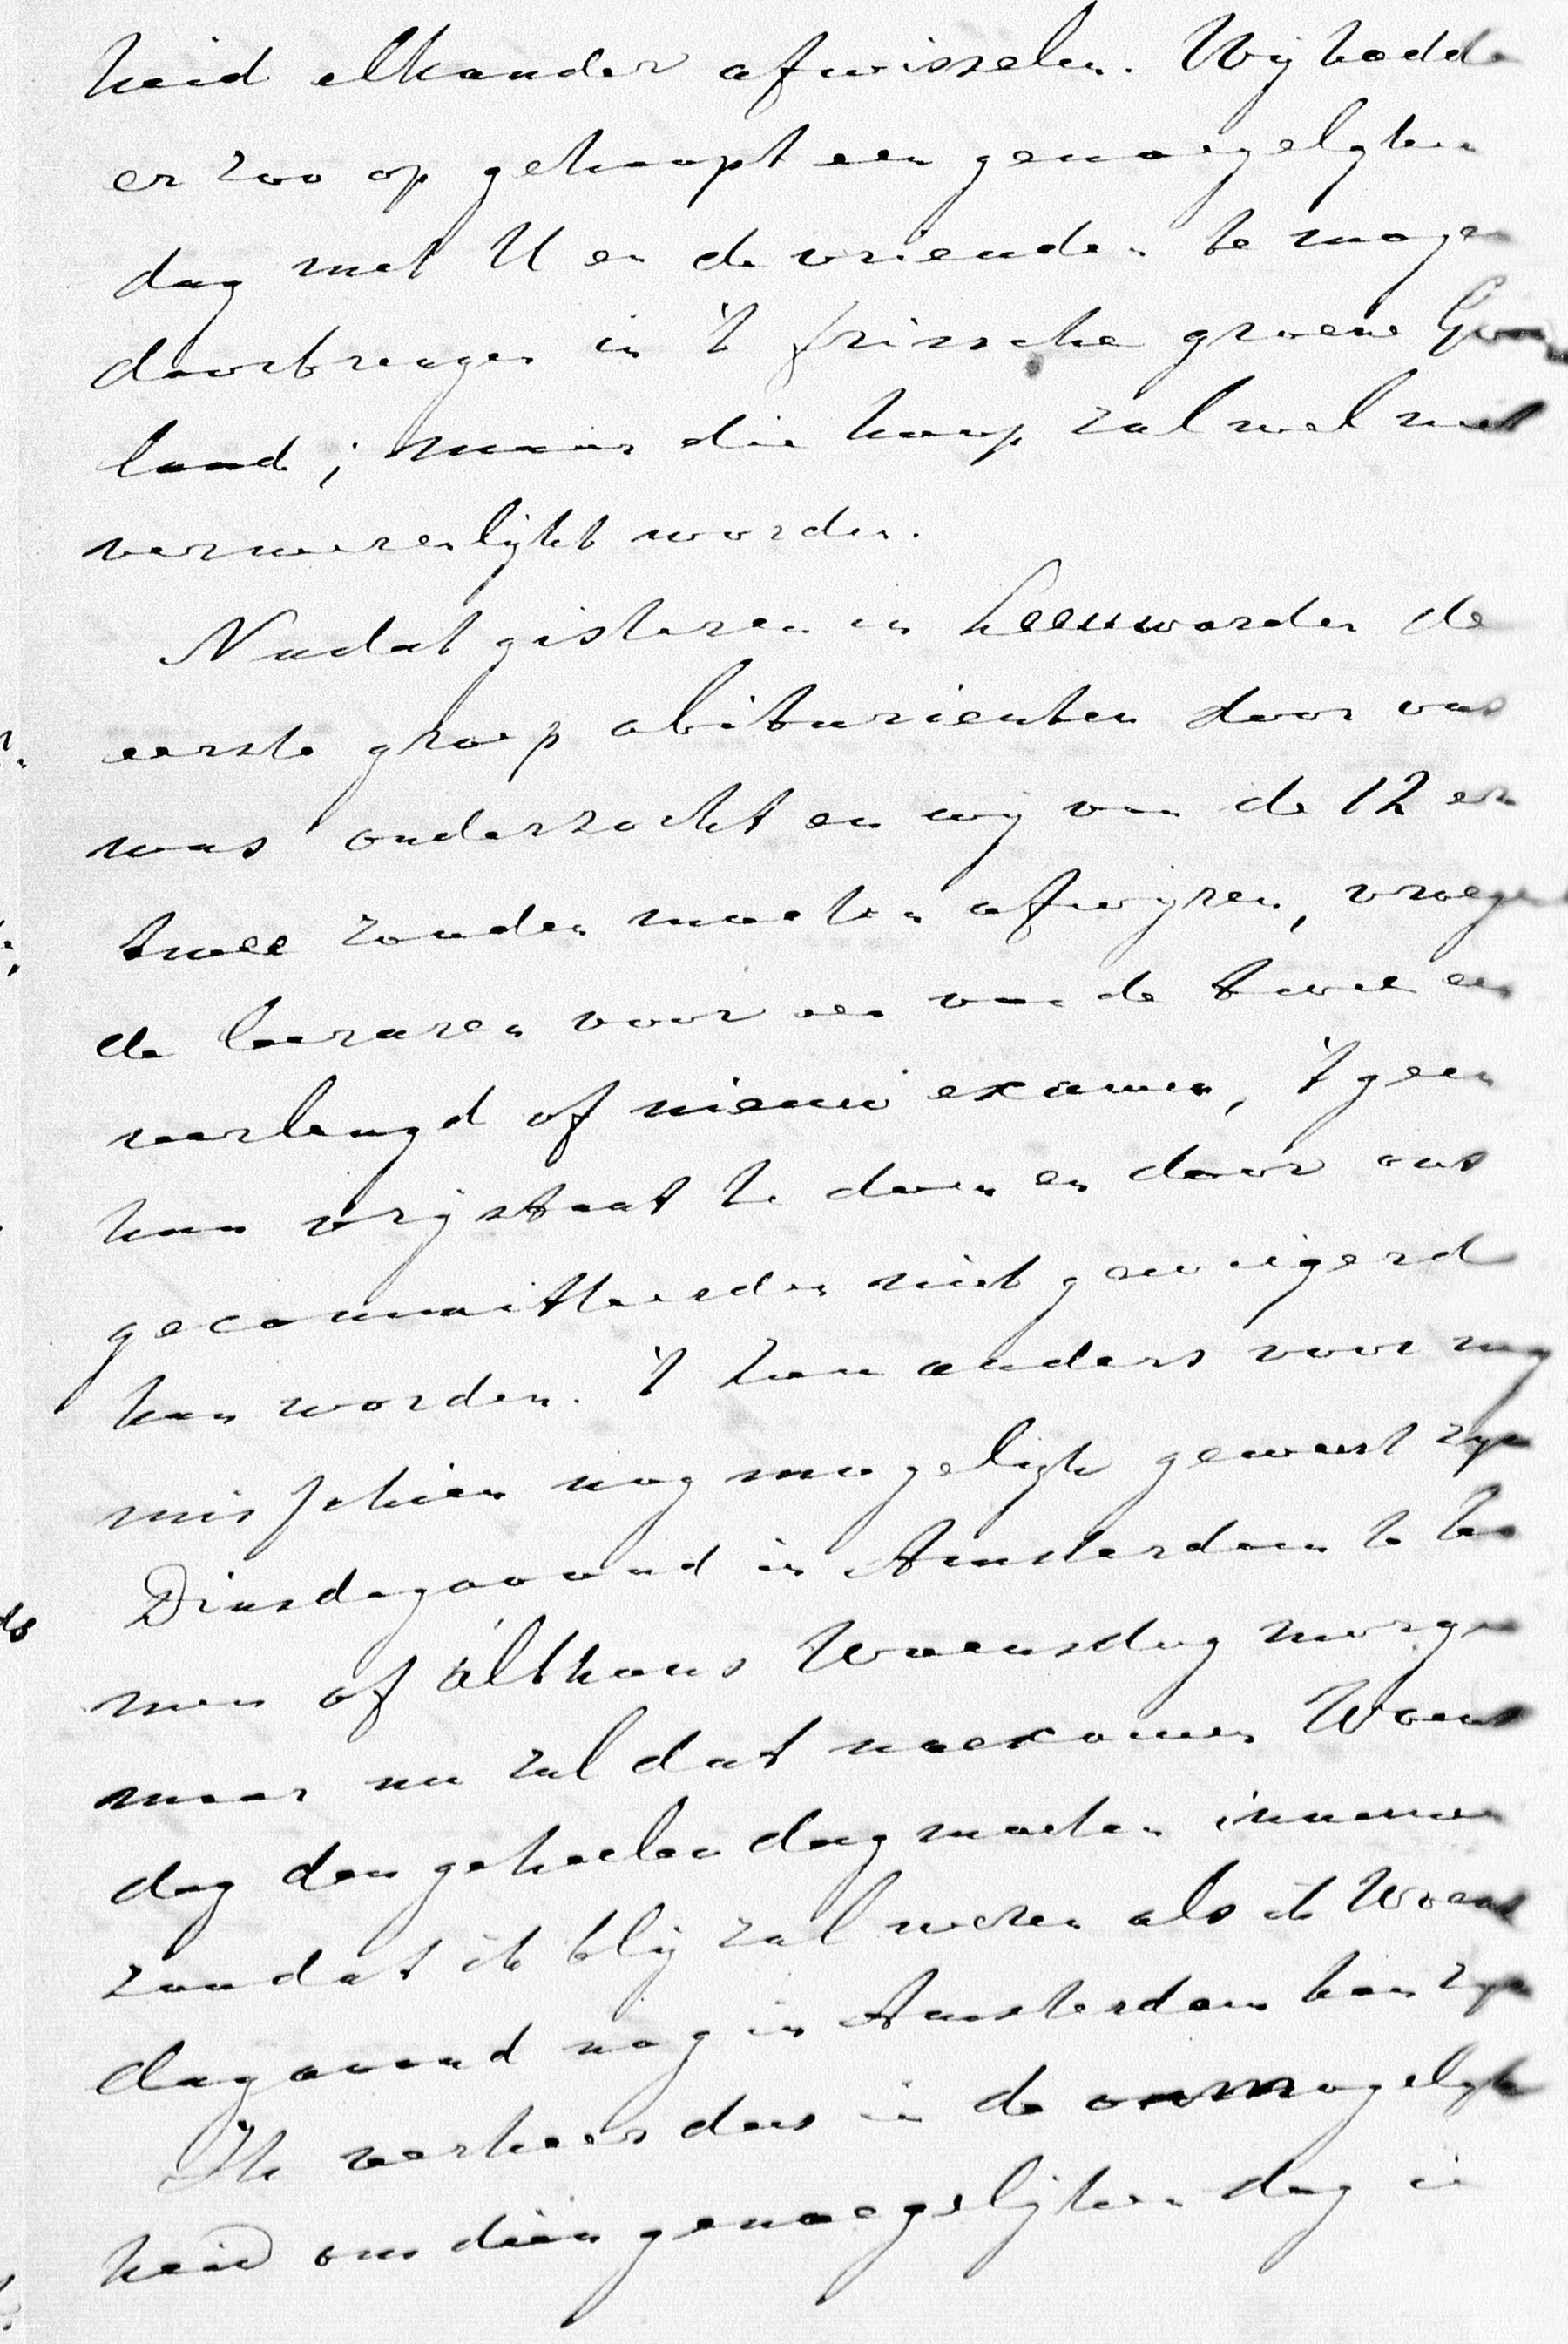 heid elkander afwisselen. Wij hadde
er zoo op gehoopt een genoegelyken
dag met U en de vrienden te mogen
doorbrengen in 't frissche groene
land; maar die hoop zal wel niet
verwezenlijkt worden.
Nadat gisteren in Leeuwarden de
eerste groep abiturienten door ons
was onderzocht en wij van de 12 er
twee zouden moeten afwyzen, vroegen
de leeraren voor een van de twee een
verlengd of nieuw examen, 't geen
hun vrijstaat te doen en door ons
gecommitteerden niet geweigerd
kan worden. 't Zou anders voor my
misschien nog mogelijk geweest zyn
Dinsdagavond in Amsterdam te ko
men of althans Woensdag morgen
maar nu zal dat naexamen Woens
dag den geheelen dag moeten innemen
zoodat ik blij zal wezen als ik Woens
dagavond nog in Amsterdam kan zyn
Ik verkeer dus in de onmogelyk
heid om dien genoegelijken dag in